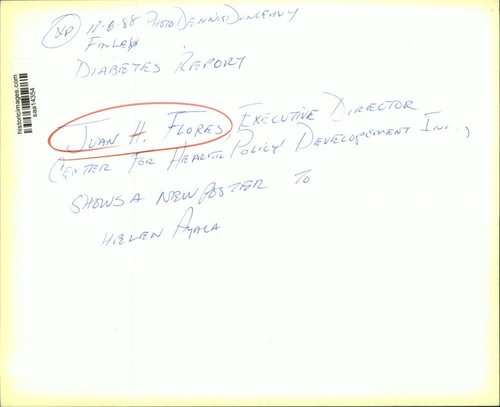 XP 11-8-88 PHOTO DENNIS DUNLEAVY
FINLEY
DIABETES REPORT
JUAN H. FLORES, EXECUTIVE DIRECTOR
CENTER FOR HEALTH POLICY DEVELOPEMENT INC.,
SHOWS A NEW POSTER TO
HIELEN AYALA
historicimages.com
saa14354